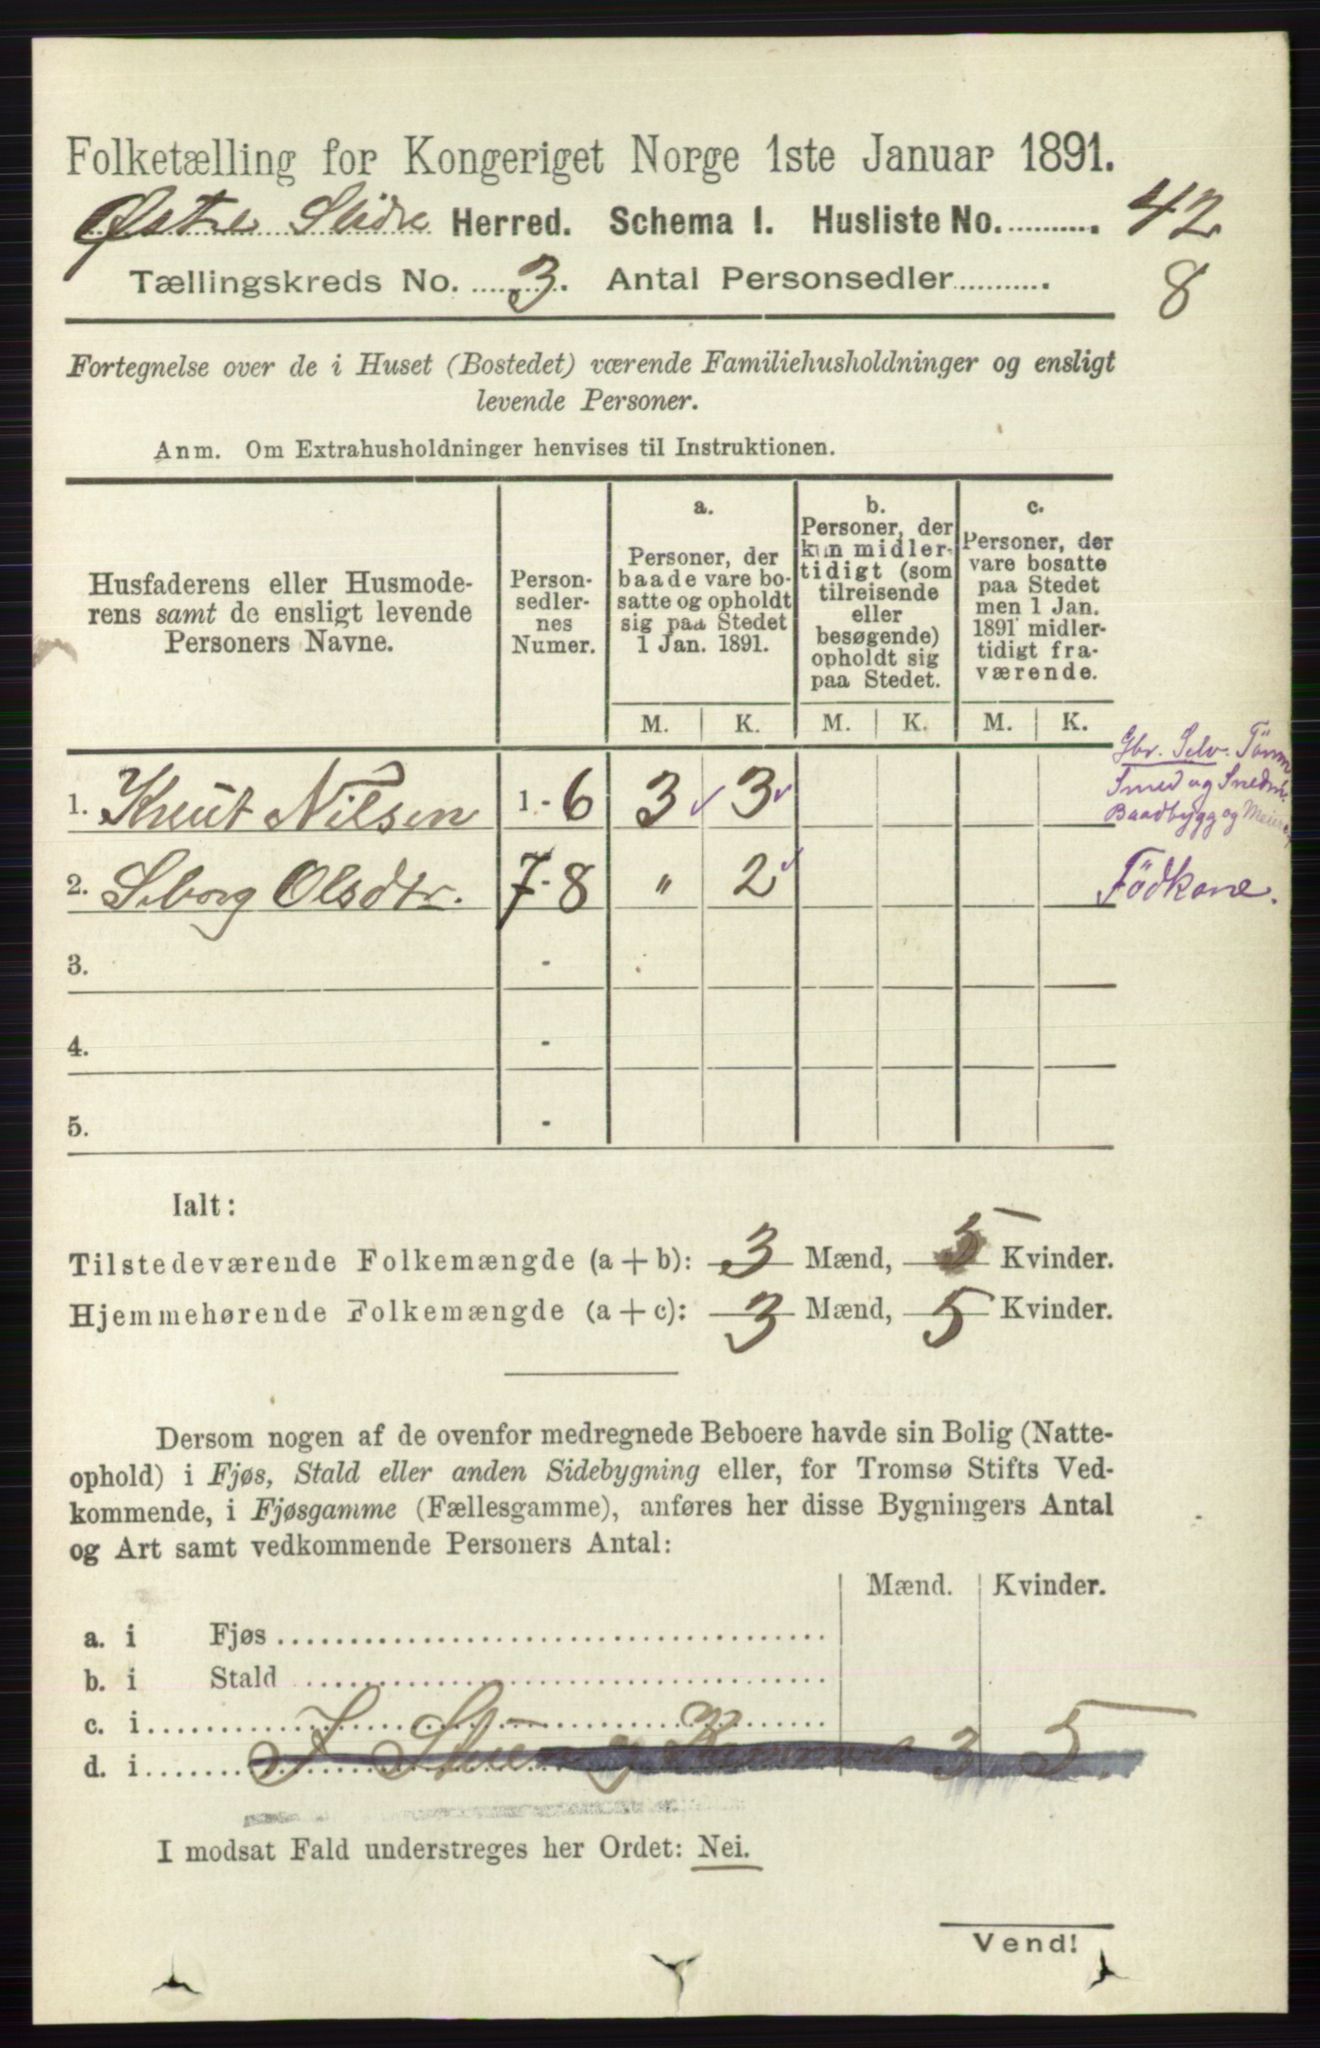 Folketælling for Kongeriget Norge 1ste Januar 1891.
Østre Slidre Herred. Schema I. Husliste No. 42
Tællingskreds No. 3. Antal Personsedler 8
Fortegnelse over de i Huset (Bostedet) værende Familiehusholdninger og ensligt
levende Personer.
Anm. Om Extrahusholdninger henvises til Instruktionen.
Husfaderens eller Husmode-
rens samt de ensligt levende
Personers Navne.
Person-
sedler-
nes
Numer.
a.
Personer, der
baade vare bo-
satte og opholdt
sig paa Stedet
1 Jan. 1891.
b.
Personer, der
kun midler-
tidigt (som
tilreisende
eller
besøgende)
opholdt sig
paa Stedet.
c.
Personer, der
vare bosatte
paa Stedet
men 1 Jan.
1891 midler-
tidigt fra-
værende.
M. K. M. K. M. K.
Gbr. Selv. Tömm
Smed og Snedm.
Baadbygg og
1. Knut Nilsen 1 - 6 3 ✓ 3 ✓
2. Siborg Olsdtr. 7 - 8 " 2 ✓ Födkone.
3. -
4. -
5. -
Ialt:
Tilstedeværende Folkemængde (a + b): 3 Mænd, 5 Kvinder.
Hjemmehørende Folkemængde (a + c): 3 Mænd, 5 Kvinder.
Dersom nogen af de ovenfor medregnede Beboere havde sin Bolig (Natte-
ophold) i Fjøs, Stald eller anden Sidebygning eller, for Tromsø Stifts Ved-
kommende, i Fjøsgamme (Fællesgamme), anføres her disse Bygningers Antal
og Art samt vedkommende Personers Antal:
Mænd. Kvinder.
a. i Fjøs
b. i Stald
c. i
d. i I Stuen og Kammeret 3 5.
I modsat Fald understreges her Ordet: Nei.
Vend!